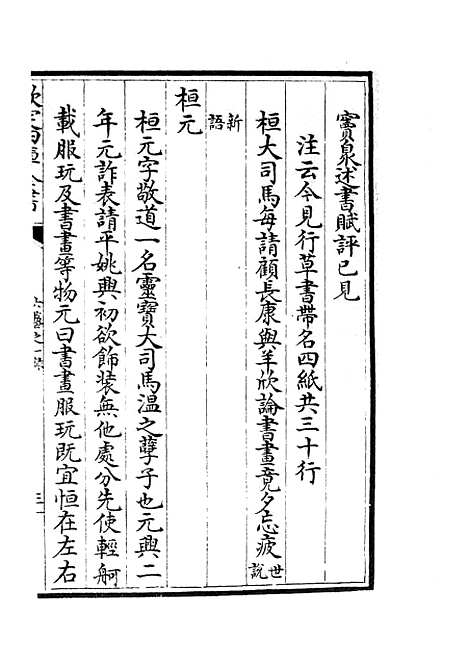 竇泉述書賦評已見
注云今見行草書帶名四紙共三十行
桓大司馬每請顧長康與羊欣論書畫竟夕忘疲世說
新語
桓元
桓元字敬道一名靈寶大司馬溫之孽子也元興二
年元詐表請平姚興初欲飾装無他處分先使輕舸
載服玩及書畫等物元曰書畫服玩既宜恒在左右